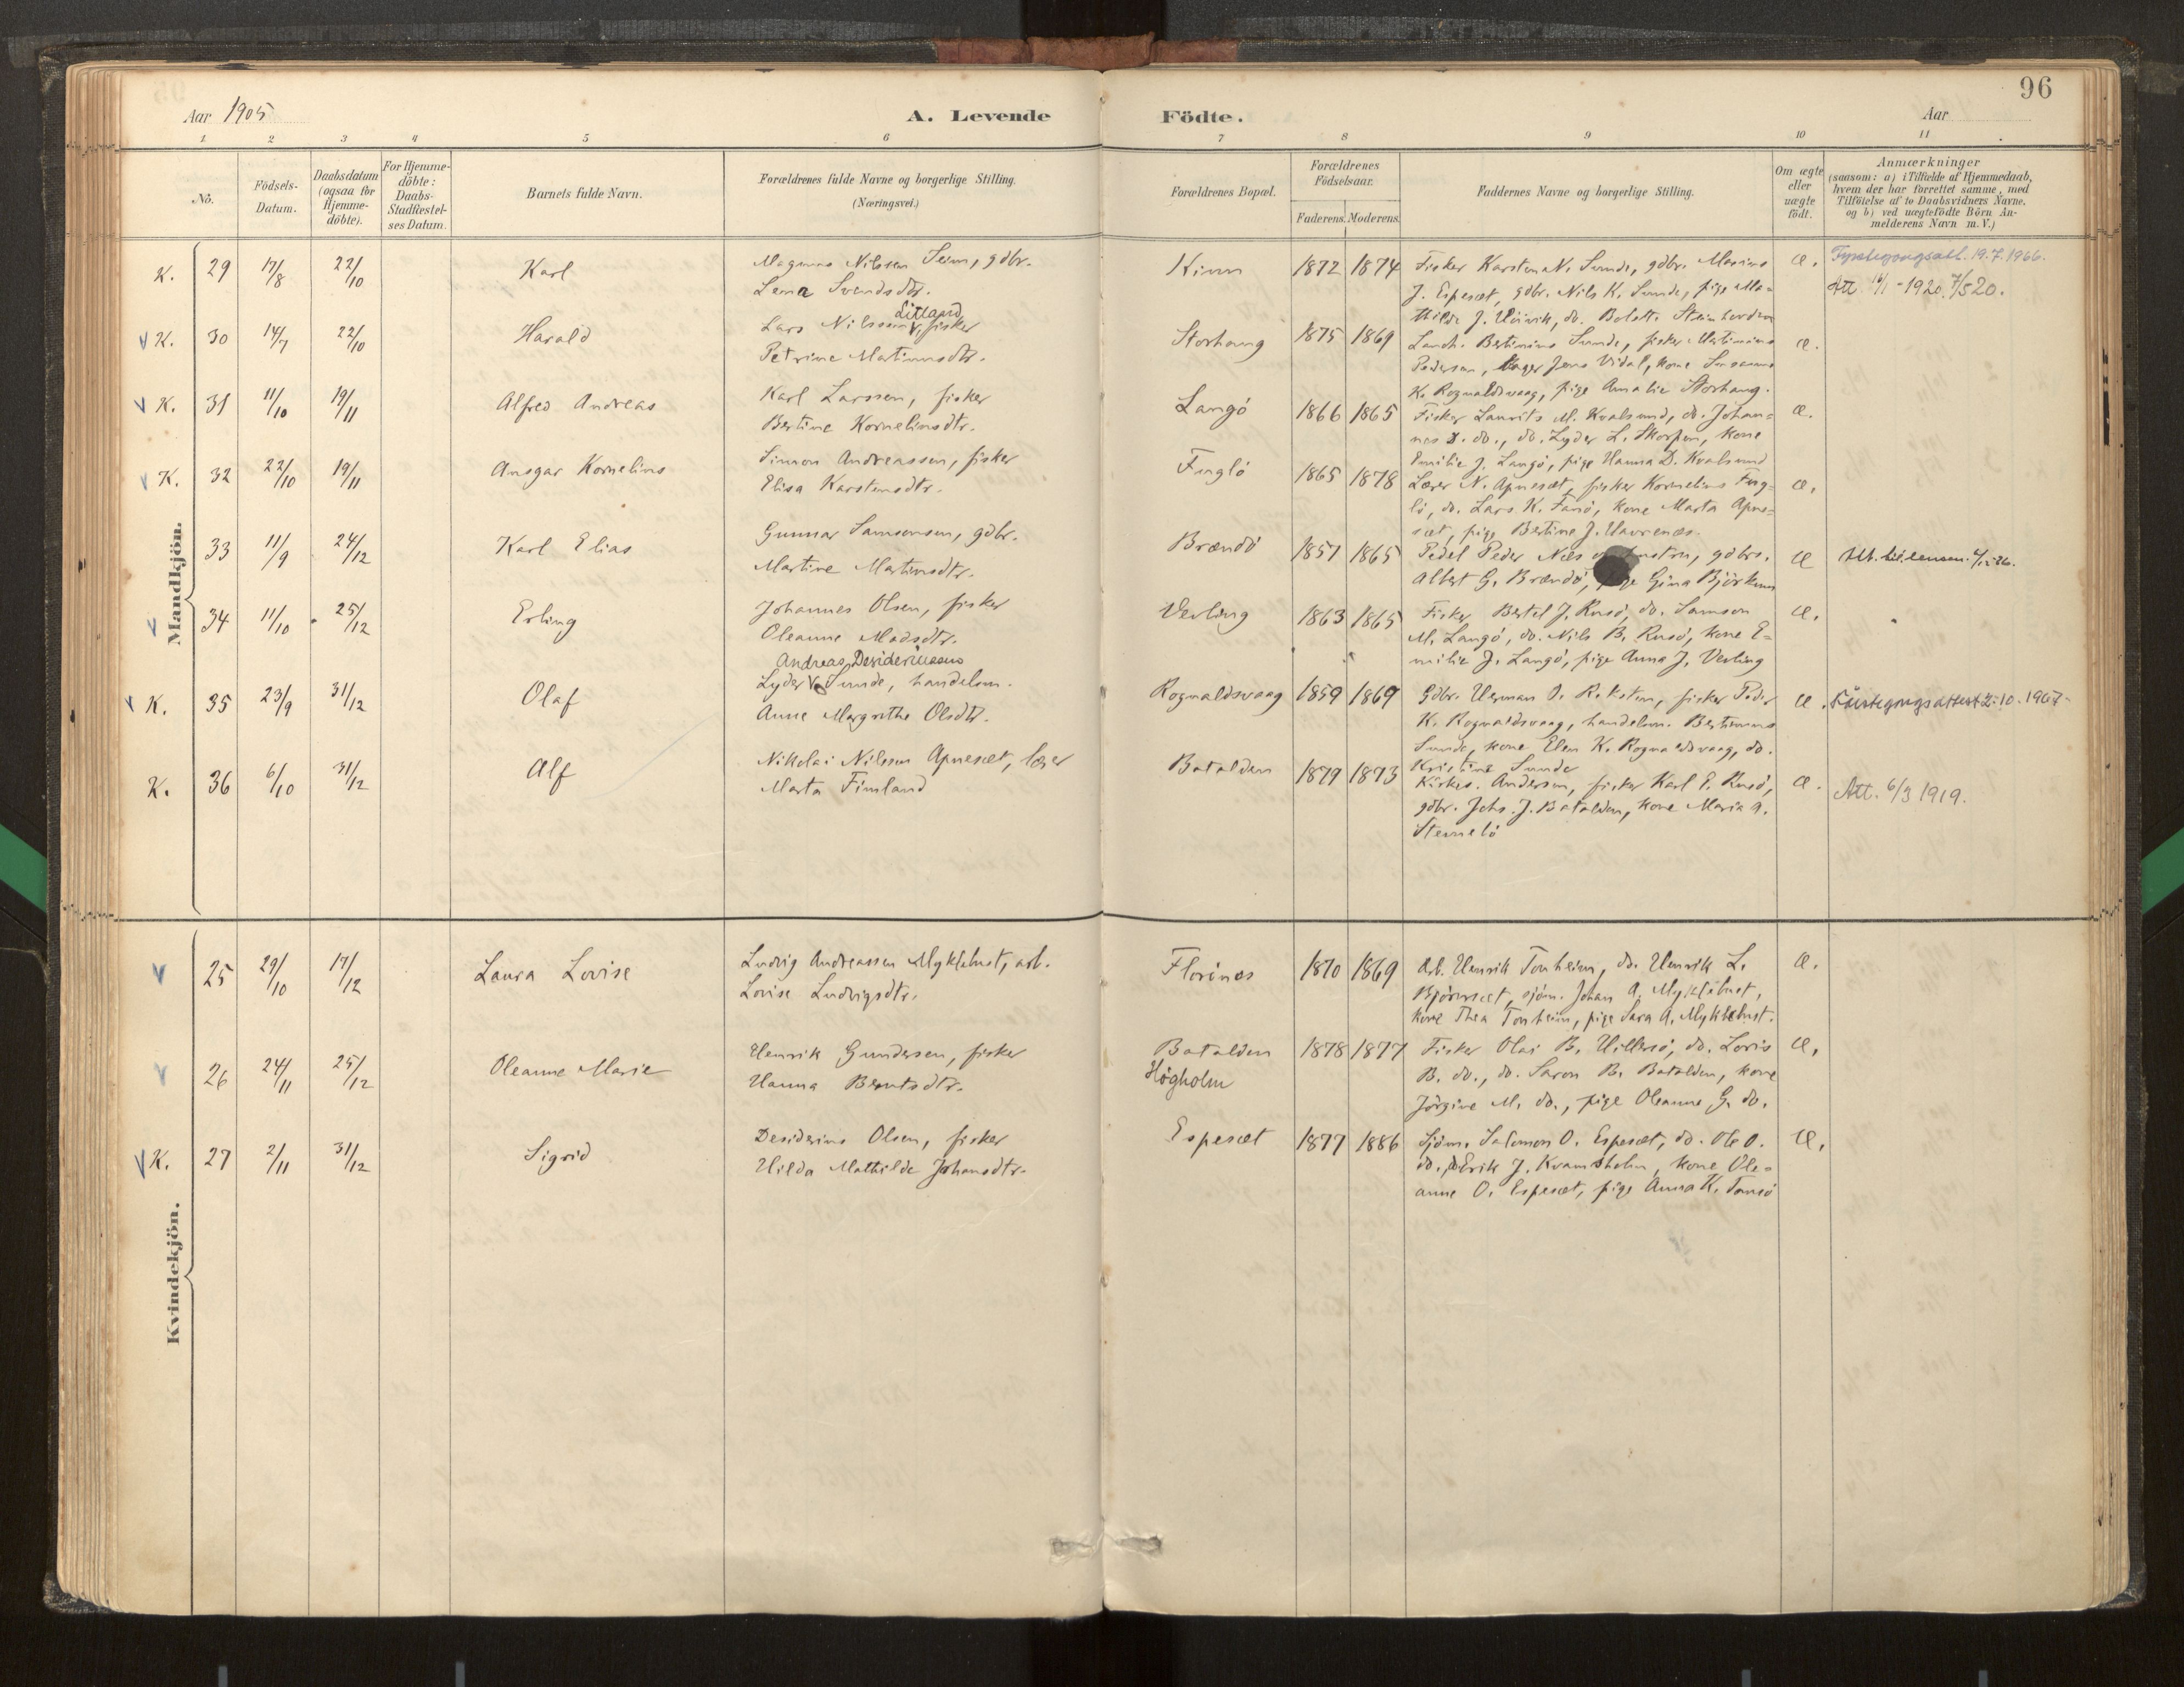 96
Aar 1905
A. Levende Födte.
Aar
1 2 3 4 5 6 7 8 9 10 11
No.
Födsels-Datum.
Daabsdatum (ogsaa för Hjemmedöbte).
For Hjemmedöbte: Daabs-Stadfæstelses Datum.
Barnets fulde Navn.
Forældrenes fulde Navne og borgerlige Stilling.
(Næringsvei.)
Forældrenes Bopæl.
Forældrenes Födselsaar.
Faderens. Moderens.
Faddernes Navne og borgerlige Stilling.
Om ægte eller uægte födt.
Anmærkninger
(saasom: a) i Tilfælde af Hjemmedaab, hvem der har forrettet samme, med Tilföielse af to Daabsvidners Navne. og b) ved uægtefödte Börn Anmelderens Navn m.V.)
Mandkjön.
K. 29 17/8 22/10 Karl
Magnus Nilssen Seim, gdbr.
Lena Svendsdtr.
Kinn 1872 1874
Fisker Karsten N. Sunde, gdbr. Marius
J. Espesæt, gdbr. Nils K. Sunde, pige Ma=
thilde J. Höivik, do. Bolette Steinhovden
æ.
Fyrstegongsatt. 19.7.1966.
Att 16/1-1920. 7/5 20.
V K. 30 14/7 22/10 Harald
Litland
Lars Nilssen V, fisker
Petrine Martinusdtr.
Storhaug 1875 1869
Landh. Bertinius Sunde, fisker Martinius
Pedersen, Jens Vidal, kone Susanne
K. Rognaldsvaag, pige Amalie Storhaug.
æ.
V K. 31 11/10 19/11 Alfred Andreas
Karl Larssen, fisker
Bertine Kornelinsdtr.
Langö 1866 1865
Fisker Laurits M. Kvalsund, do. Johan=
nes do., do. Lyder L. Skorpen, kone
Emilie J. Langö, pige Hanna D. Kvalsund
æ.
V K. 32 22/10 19/11 Ansgar Kornelius
Simon Andreassen, fisker
Elisa Karstensdtr.
Fuglö 1865 1878
Lærer N. Apnesæt, fisker Kornelius Fug=
lö, do. Lars K. Fanö, kone Marta Apne=
sæt, pige Bertine J. Havrenæs.
æ.
33 11/9 24/12 Karl Elias
Gunnar Samsonsen, gdbr.
Martine Martinsdtr.
Brændö 1857 1865
Pedel Peder Næs og hustru, gdbr.
Albert G. Brændö, pige Gina Björkum
æ
V 34 11/10 25/12 Erling
Johannes Olsen, fisker
Oleanne Madsdtr.
Verling 1863 1865
Fisker Bertel J. Rusö, do. Samson
M. Langö, do. Nils B. Rusö, kone E=
milie J. Langö, pige Anna J. Verling
æ.
V K. 35 23/9 31/12 Olaf
Andreas Desideriussus
Lyder V Sunde, handelsm.
Anne Margrethe Olsdtr.
Rognaldsvaag 1859 1869
Gdbr. Herman O. Reksten, fisker Peder
K. Rognaldsvaag, handelsm. Bertinius
Sunde, kone Elen K. Rognaldsvaag, do.
Kristine Sunde
æ.
Förstegangsattest 2-10.1967-
K. 36 6/10 31/12 Alf
Nikolai Nilssen Apnesæt, lærer
Marta Fimland
Batalden 1879 1873
Kirkes. Andersen, fisker Karl E. Rusö,
gdbr. Johs. J. Batalden, kone Maria A.
Steinelö
æ.
Att. 6/3 1919.
Kvindekjön.
V 25 29/10 17/12 Laura Lovise
Ludvig Andreassen Myklebust, arb.
Lovise Ludvigsdtr.
Florines 1870 1869
Arb. Henrik Tonheim, do. Henrik L.
Björnsæt, sjöm. Johan A. Myklebust,
kone Thea Tonheim, pige Sara A. Myklebust.
æ.
V 26 24/11 25/12 Oleanne Marie
Henrik Gundersen, fisker
Hanna Berntsdtr.
Batalden
Högholm
1878 1877
Fisker Olai B. Hillersö, do. Loris
B. do., do. Saron B. Batalden, kone
Jörgine M. do., pige Oleanne G. do.
æ.
V K. 27 2/11 31/12 Sigrid
Desiderius Olsen, fisker
Hilda Mathilde Johansdtr.
Espesæt 1877 1886
Sjöm. Salomon O. Espesæt, do. Ole O.
do., do Erik J. Kvamsholm, kone Ole=
anne O. Espesæt, pige Anna K. Tansö
æ.